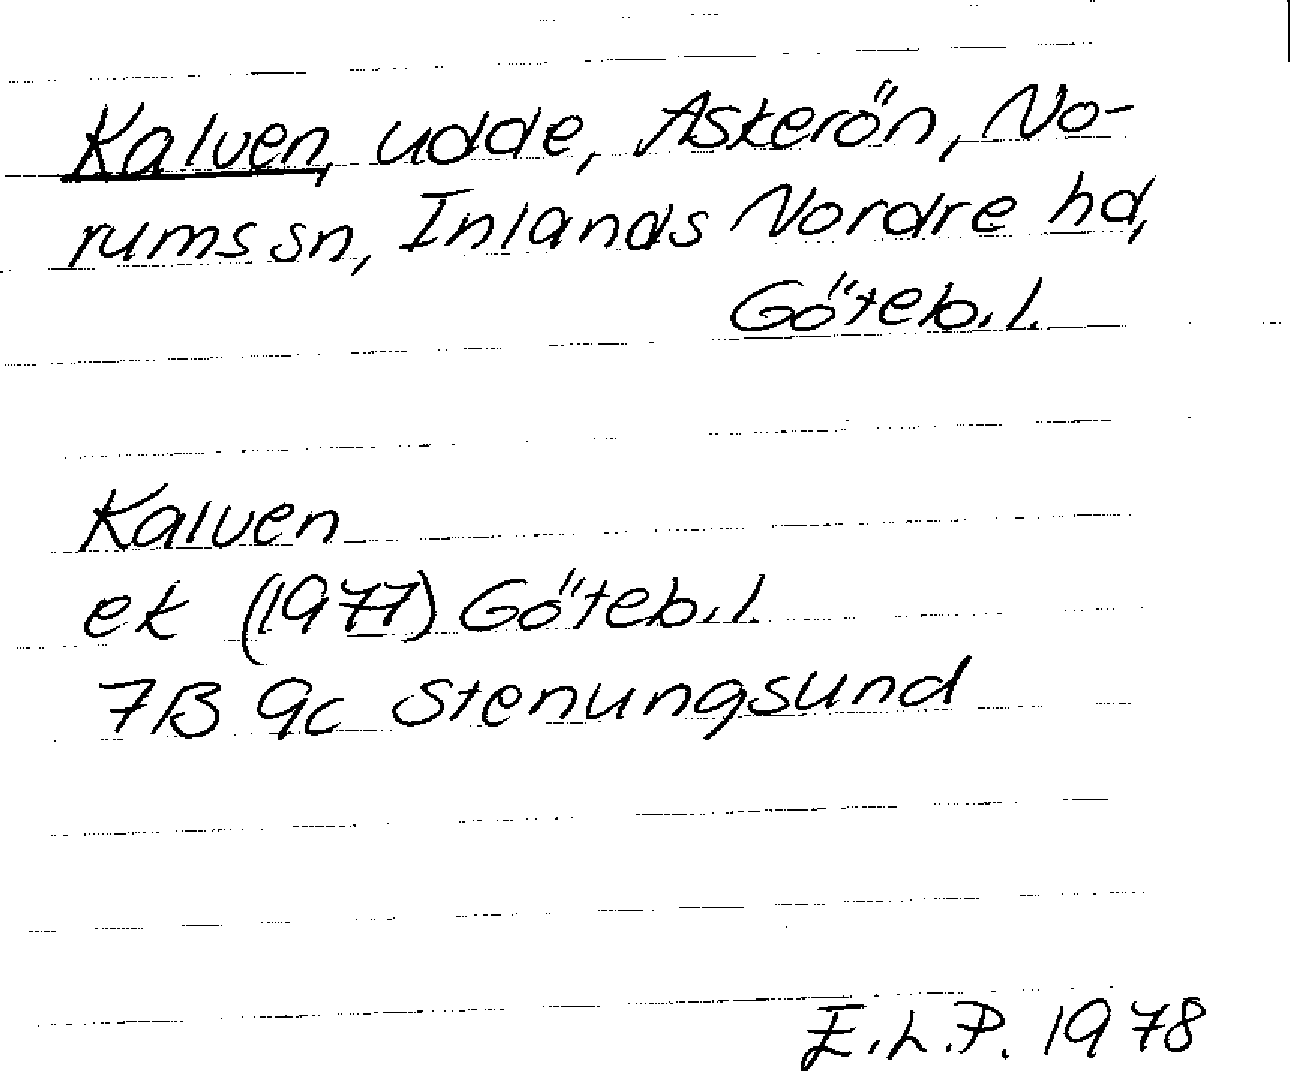 Kalven, udde, Askerön, No-
rums sn, Inlands Nordre hd,
Göteb. l.
Kalven
ek (1977) Göteb. l.
7B 9c Stenungsund
E.L.P. 1978